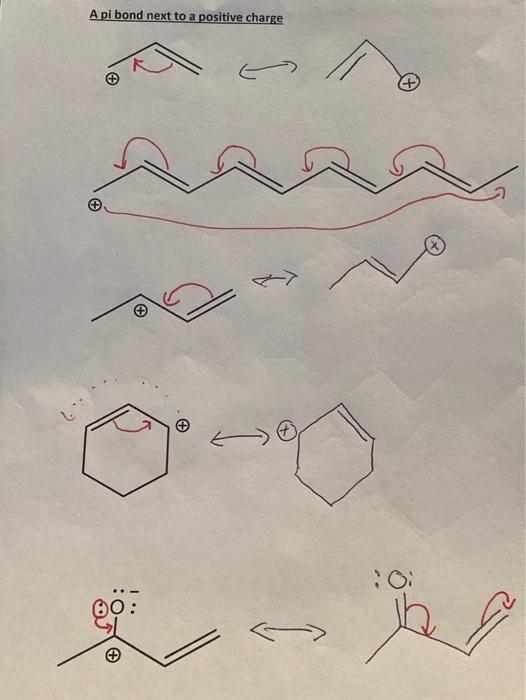 A pi bond next to a positive charge
+
+
+
+
x
+
+
:O:
:O:
+